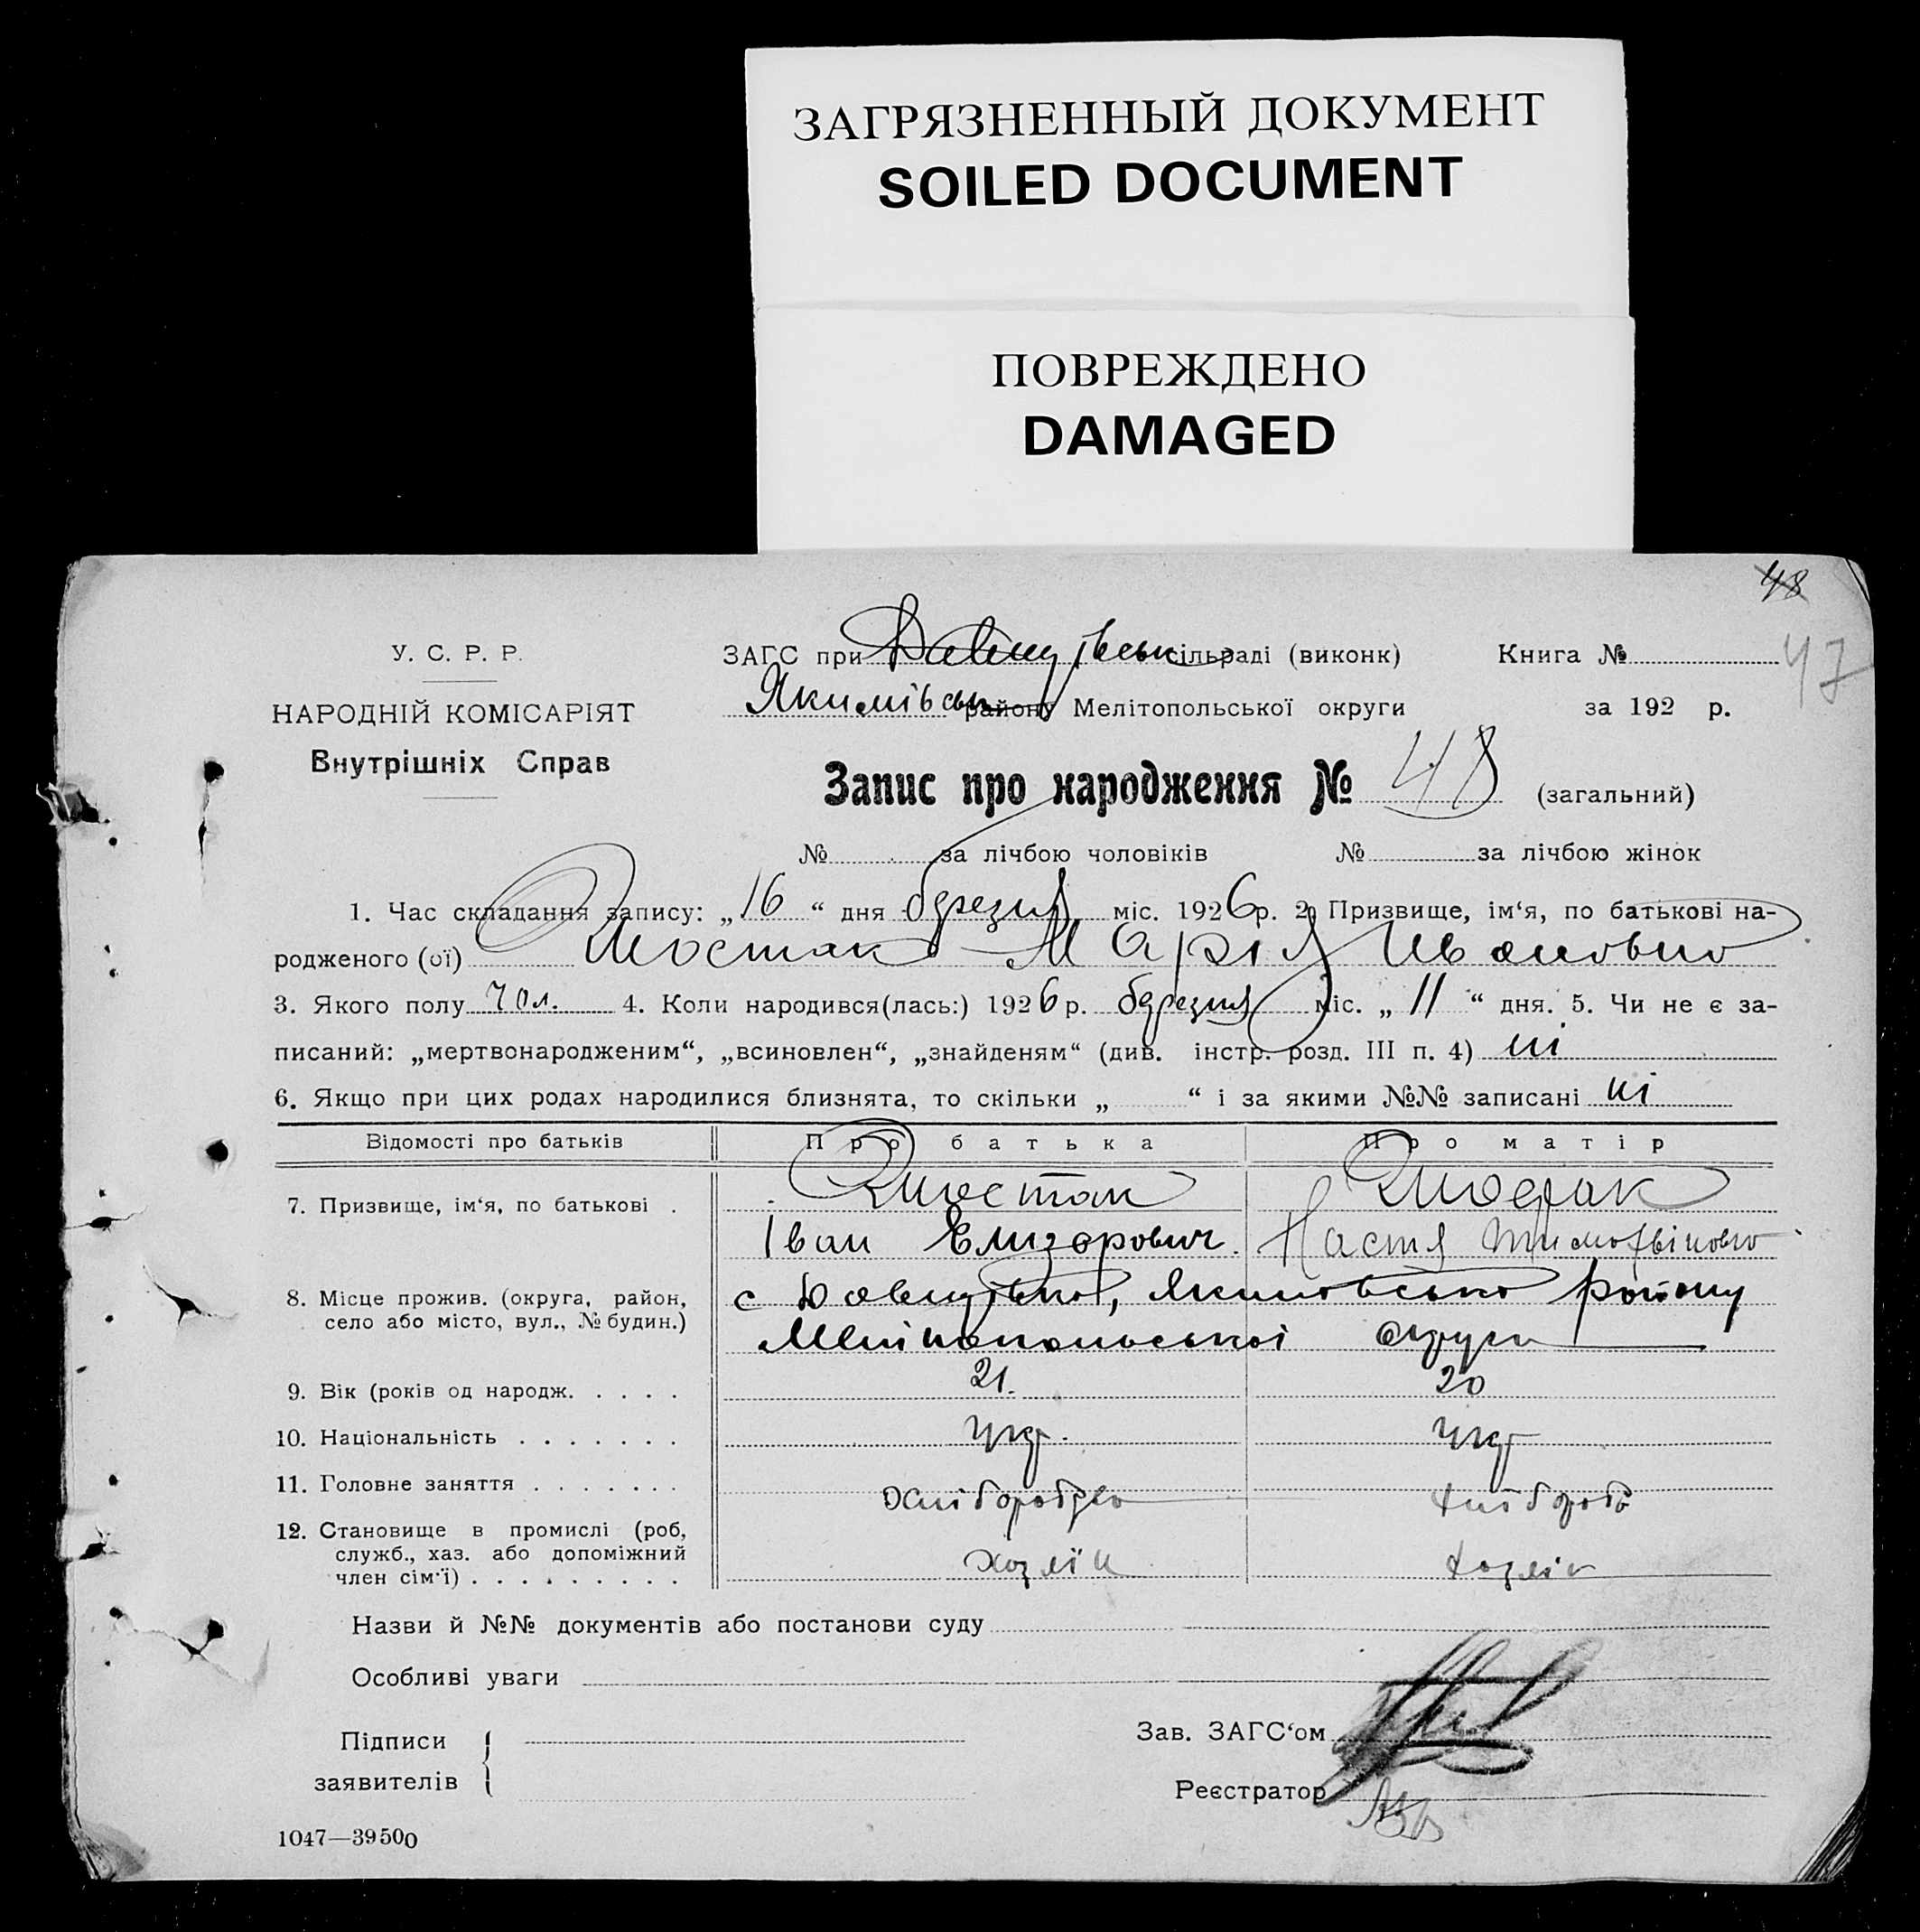 ЗАГРЯЗНЕННЫЙ ДОКУМЕНТ
SOILED DOCUMENT
ПОВРЕЖДЕНО
DAMAGED
48
47
У. С. Р. Р.
НАРОДНІЙ КОМІСАРІЯТ
Внутрішніх Справ
ЗАГС при сільраді (виконк) Книга №
Якимівськ району Мелітопольської округи за 192 р.
Запис про народження № 48 (загальний)
№ за лічбою чоловіків № за лічбою жінок
1. Час складання запису: „16“ дня березня міс. 1926 р. 2. Призвище, ім‘я, по батькові на-
родженого (ої) Шостак Марія Івановна
3. Якого полу чол. 4. Коли народився(лась:) 1926 р. березня міс. „11“ дня. 5. Чи не є за-
писаний: „мертвонародженим“, „всиновлен“, „знайденям“ (див. інстр. розд. III п. 4) ні
6. Якщо при цих родах народилися близнята, то скільки „ “ і за якими №№ записані ні
Відомості про батьків Про батька Про матір
7. Призвище, ім‘я, по батькові . Шостак
Іван Елизарович Настя
8. Місце прожив. (округа, район, село або місто, вул., № будин.) с району
Мелітопольської округи
9. Вік (років од народж. . . . . 21. 20
10. Національність . . . . . . . Укр. Укр
11. Головне заняття . . . . . . . Хлібороб
12. Становище в промислі (роб,
служб., хаз. або допоміжний
член сім‘ї) . . . . . . . . . Хозяїн
Назви й №№ документів або постанови суду
Особливі уваги
Підписи
заявителів
Зав. ЗАГС‘ом
Реєстратор
1047—39500